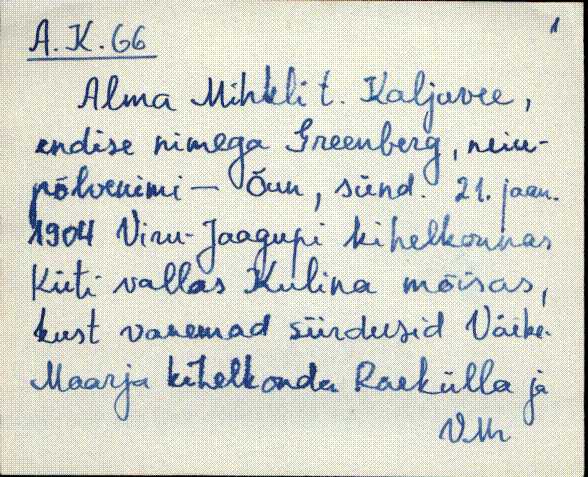 1
A.K.66
Alma Mihkli t. Kaljuvee,
endise nimega Greenberg, neiu-
põlvenimi — Õun, sünd. 21. jaan.
1904 Viru-Jaagupi kihelkonnas
Küti vallas Kulina mõisas,
kust vanemad siirdusid Väike-
Maarja kihelkonda Raekülla ja